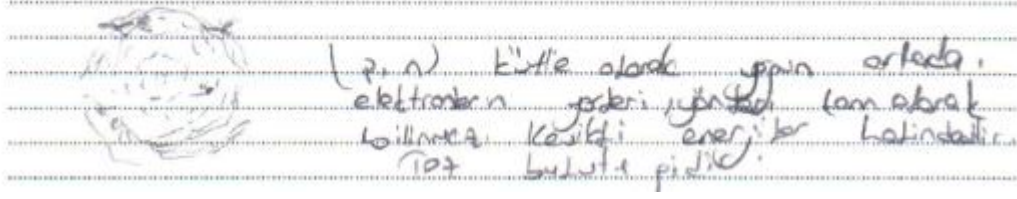 (p, n) kütle olarak yoğun ortada.
elektronların yerleri, yönleri tam olarak
bilinmez. Kesikli enerjiler halindedir.
Toz bulutu gibidir.